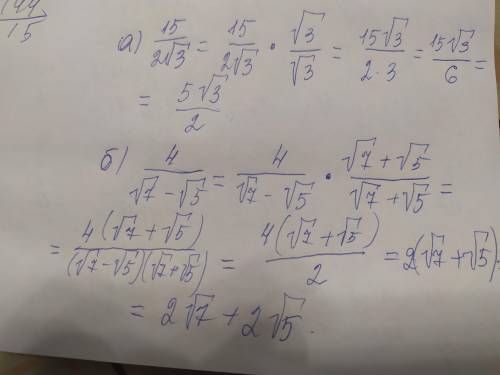 144/15
а) 15/(2√3) = 15/(2√3) · √3/√3 = 15√3/(2·3) = 15√3/6 =
= 5√3/2
б) 4/(√7 - √5) = 4/(√7 - √5) · (√7 + √5)/(√7 + √5) =
= 4(√7 + √5)/((√7 - √5)(√7 + √5)) = 4(√7 + √5)/2 = 2(√7 + √5) =
= 2√7 + 2√5.